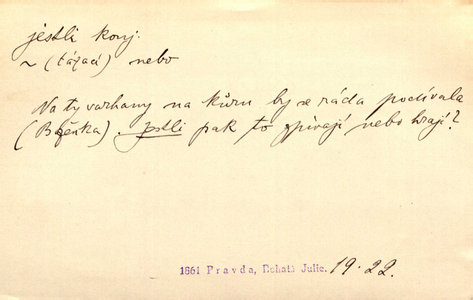 jestli konj.
~ (tázací) nebo
Na ty varhany na kůru by se ráda podívala
(Božénka). jestli pak to zpívají nebo hrají?
1861 Pravda, Bohatí Julie. 19. 22.